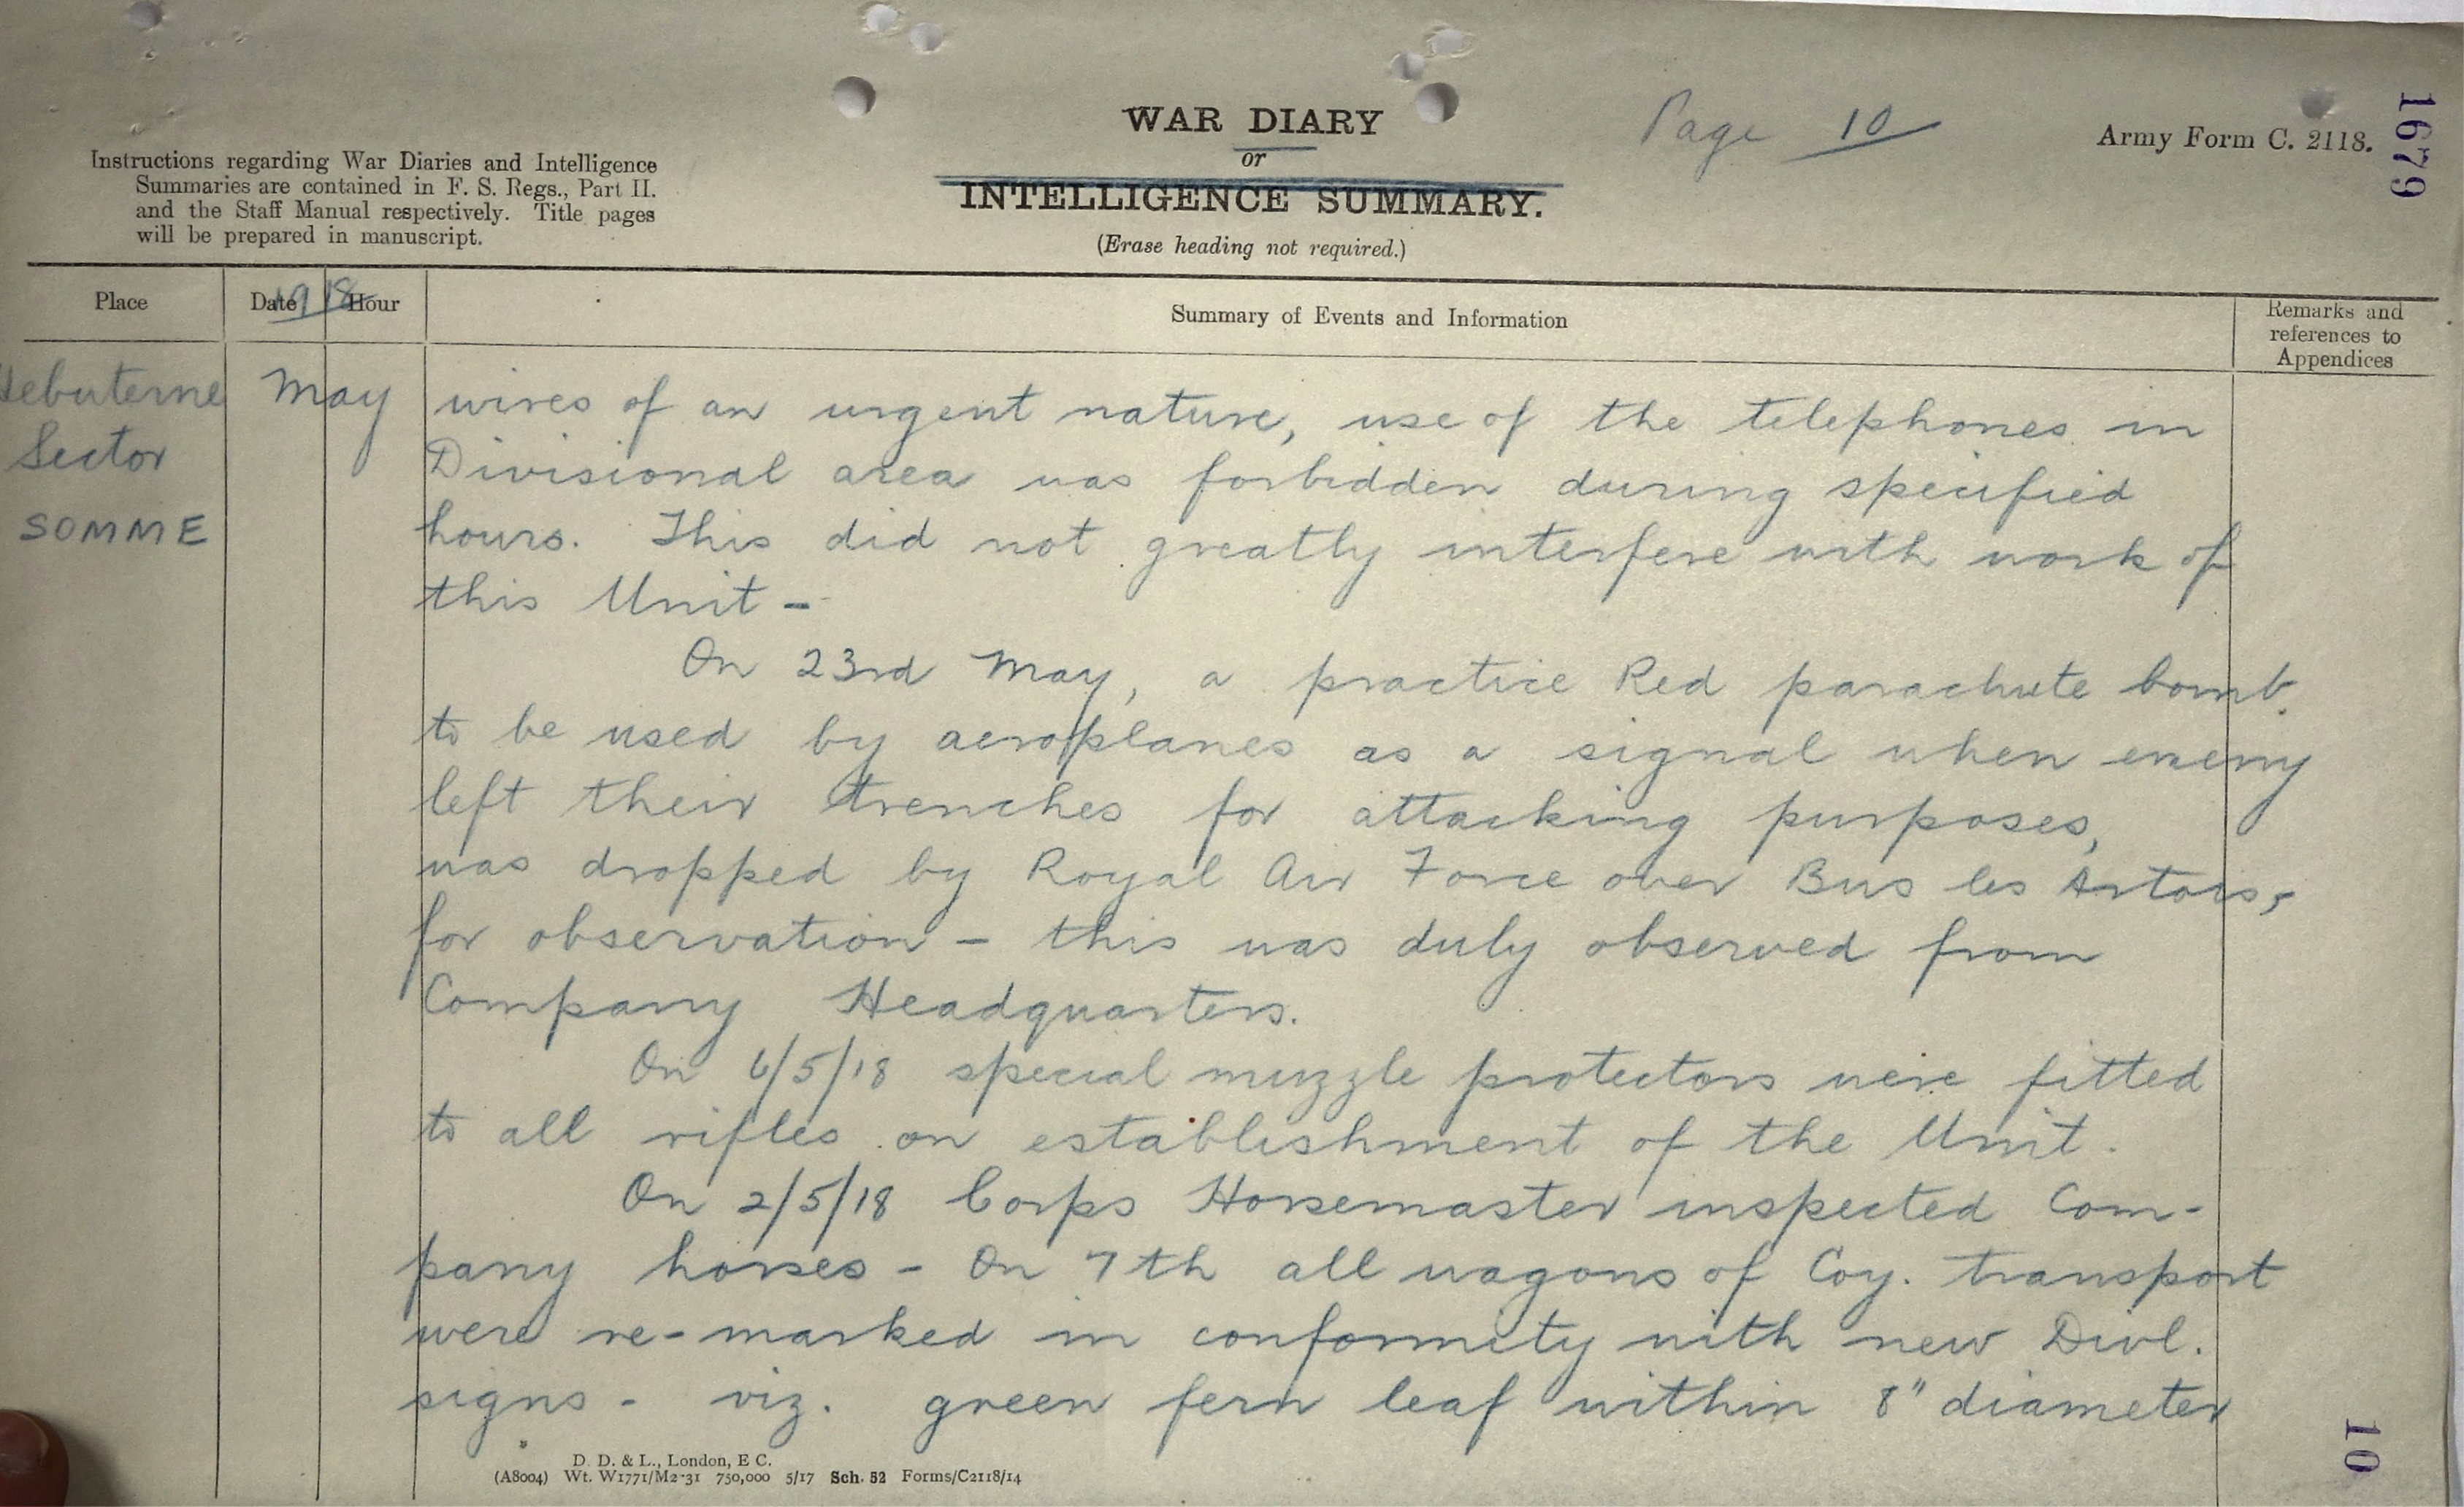 WAR DIARY
or
INTELLIGENCE SUMMARY.
(Erase heading not required.)
Page 10
Army Form C. 2118.
1679
Instructions regarding War Diaries and Intelligence
Summaries are contained in F. S. Regs., Part II.
and the Staff Manual respectively. Title pages
will be prepared in manuscript.
Place
Date
Hour
1918
Summary of Events and Information
Remarks and
references to
Appendices
Hebuterne
Sector
SOMME
May
wires of an urgent nature, use of the telephones in
Divisional area was forbidden during specified
hours. This did not greatly interfere with work of
this Unit -
On 23rd May, a practice Red parachute bomb
to be used by aeroplanes as a signal when enemy
left their trenches for attacking purposes,
was dropped by Royal Air Force over Bus les Artois,
for observation - this was duly observed from
Company Headquarters.
On 6/5/18 special muzzle protectors were fitted
to all rifles on establishment of the Unit.
On 2/5/18 Corps Horsemaster inspected Com-
pany horses - On 7th all wagons of Coy. transport
were re-marked in conformity with new Divl.
signs - viz. green fern leaf within 8" diameter
D. D. & L., London, E C.
(A8004) Wt. W1771/M2-31 750,000 5/17 Sch. 52 Forms/C2118/14
10